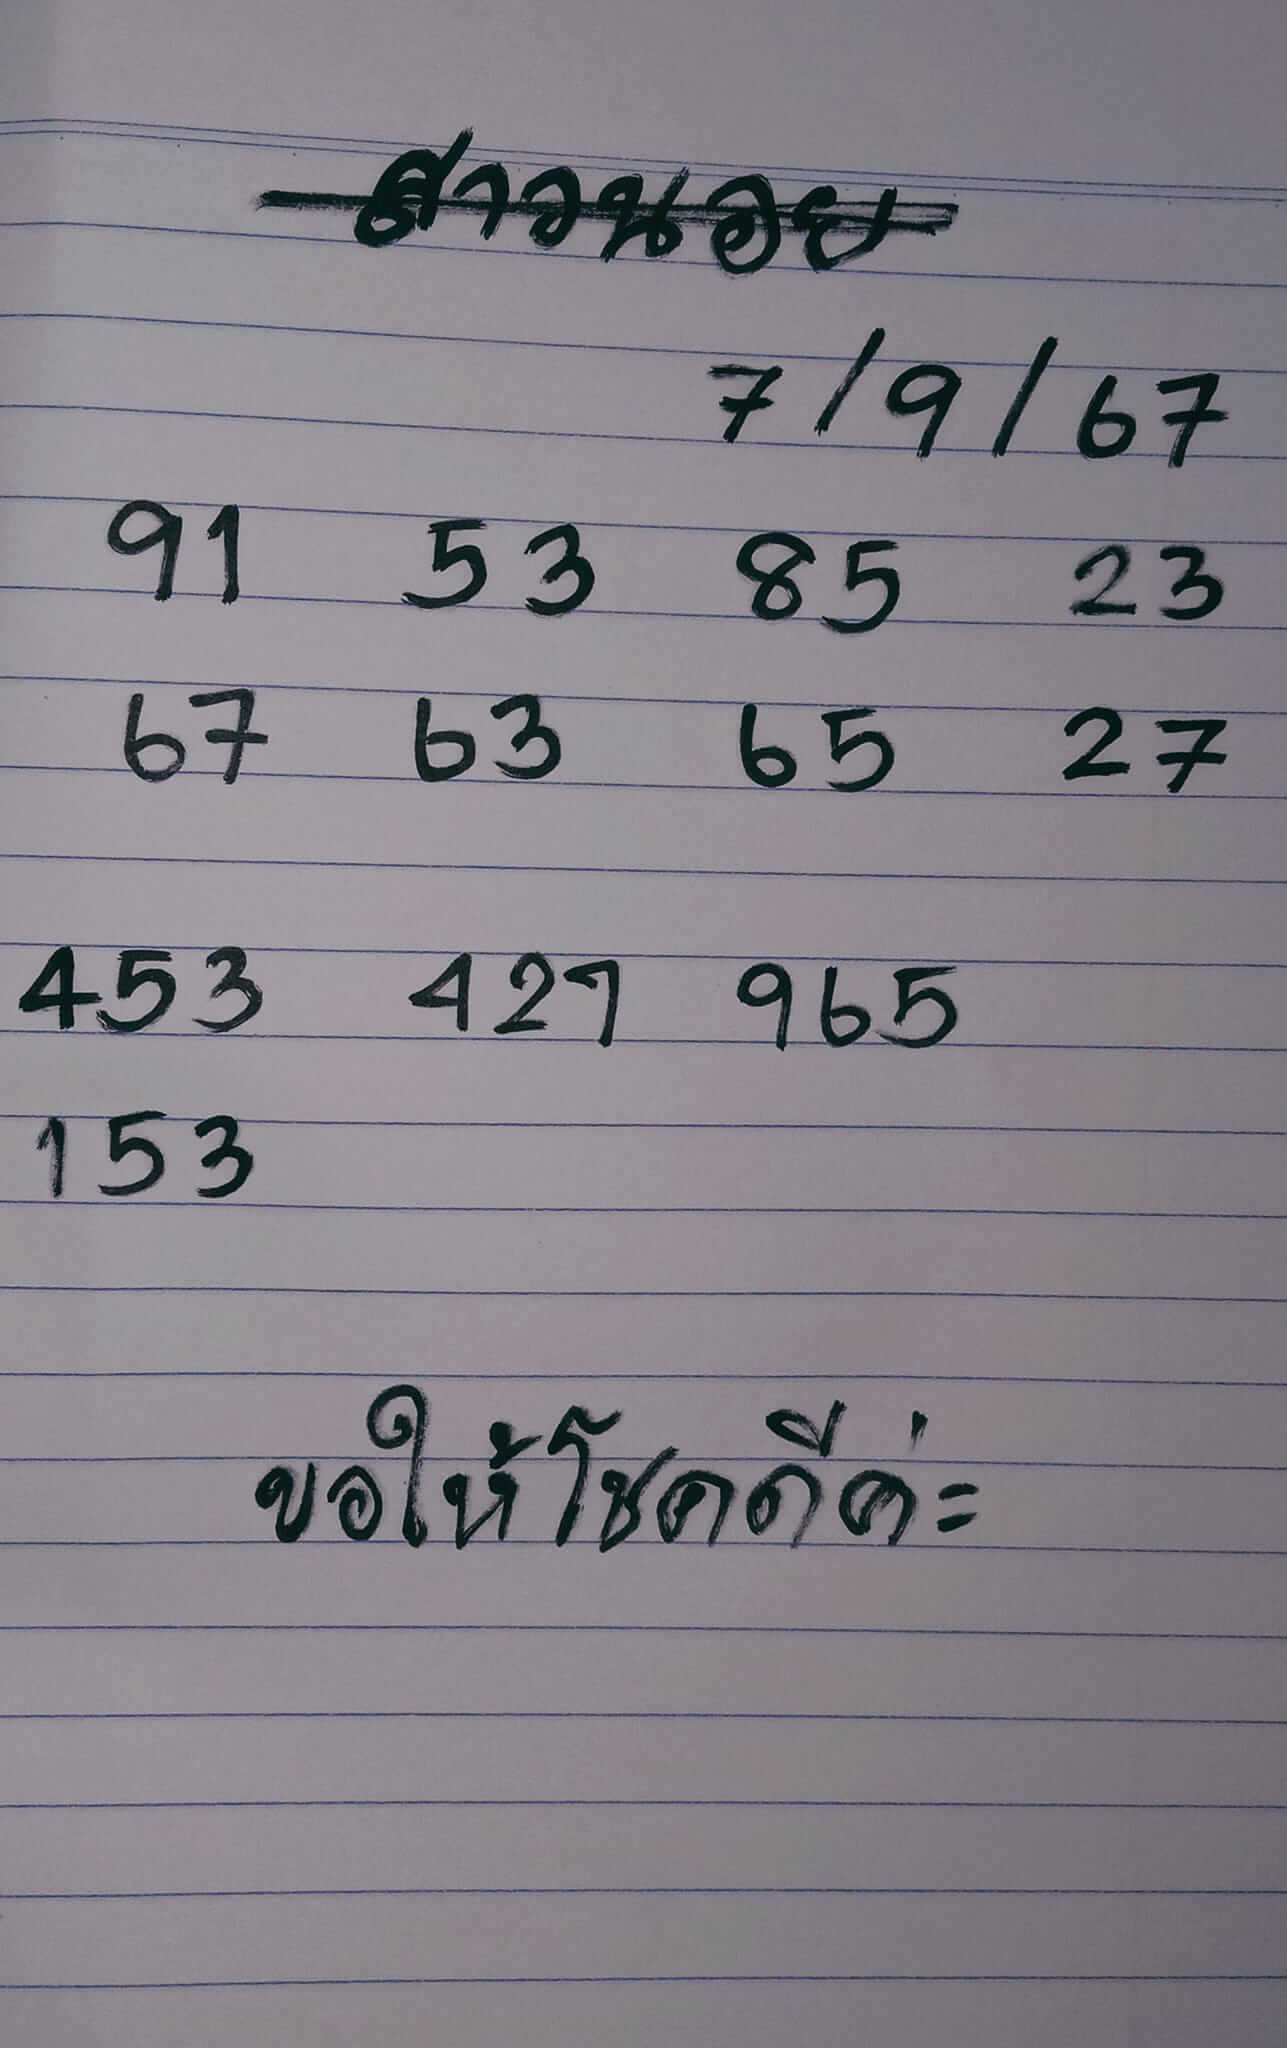 สาวนอย
7/9/67
91 53 85 23
67 63 65 27
453 427 965
153
ขอให้โชคดีค่ะ